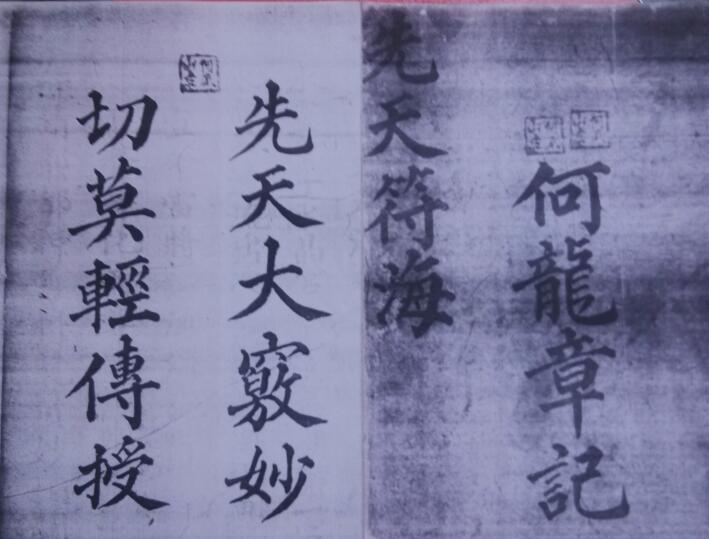 何龍章記
先天符海
先天大竅妙
切莫輕傳授